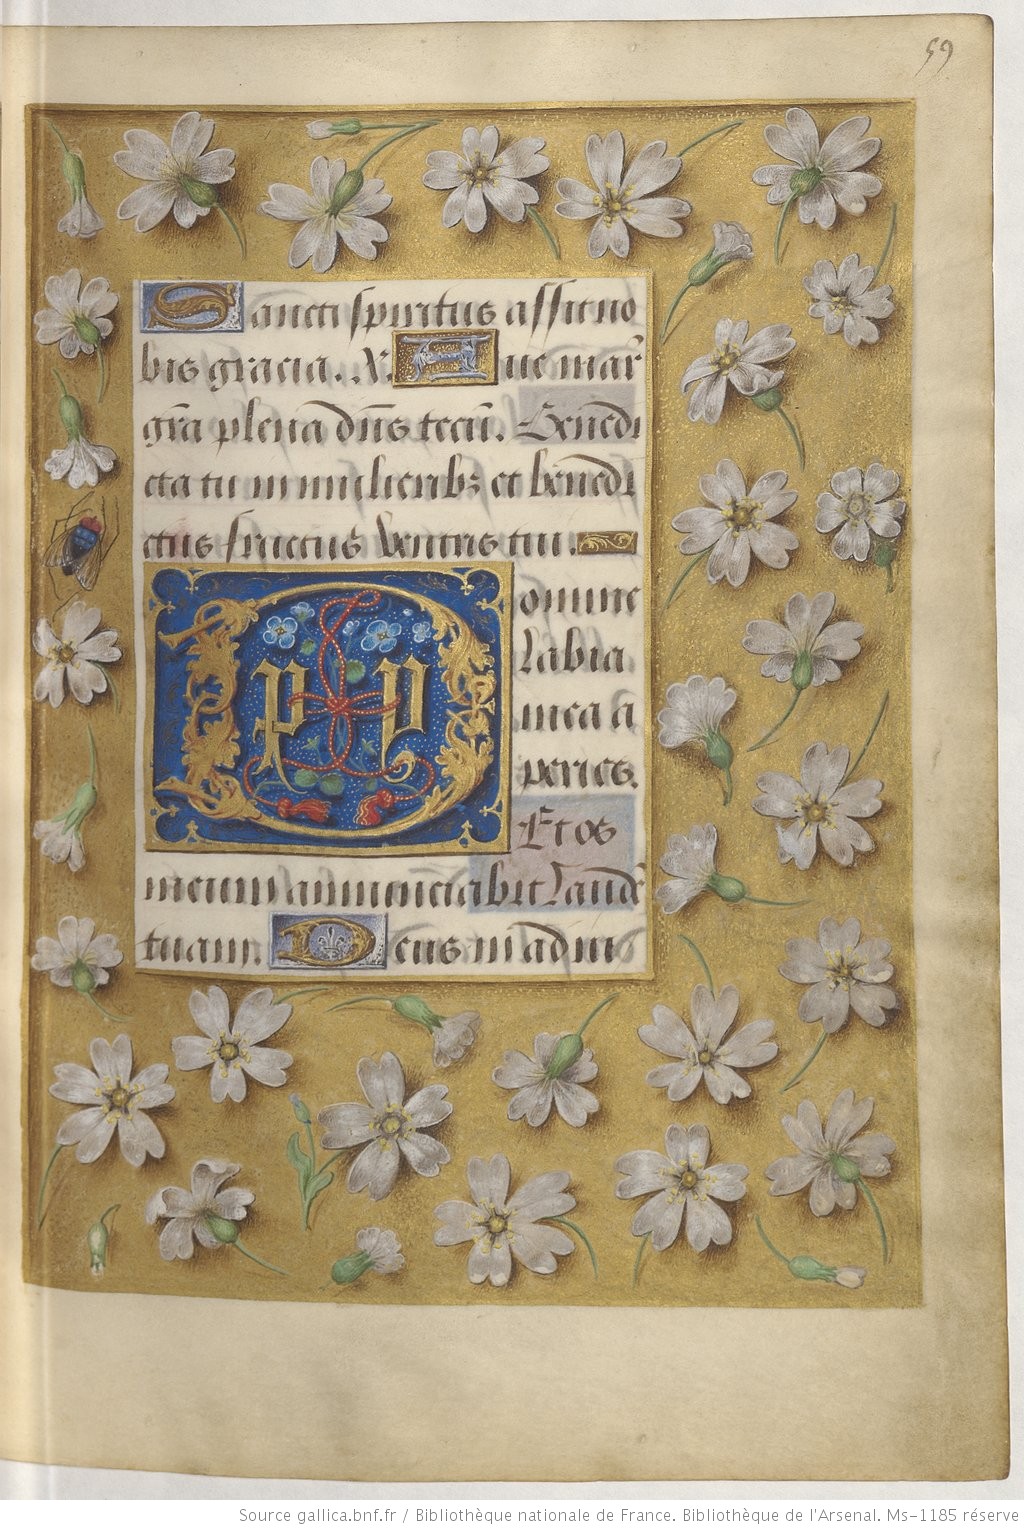 59
Sancti spiritus assit no
bis gracia. V. Aue mar
gra plena dns tecu. Benedi
cta tu in mulierib; et benedi
ctus fructus ventris tui.
p p
omine
labia
mea a
peries.
Et os
meum annunciabit laude
tuam. Deus in adiu
Source gallica.bnf.fr / Bibliothèque nationale de France. Bibliothèque de l'Arsenal. Ms-1185 réserve